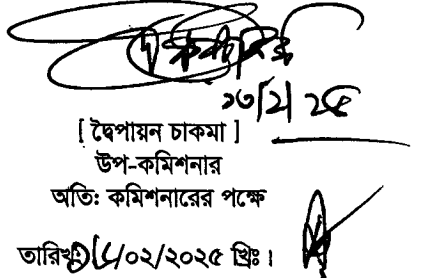 ১৩/২/২৫
[ দ্বৈপায়ন চাকমা ]
উপ-কমিশনার
অতি: কমিশনারের পক্ষে
তারিখ: /০২/২০২৫ খ্রিঃ।